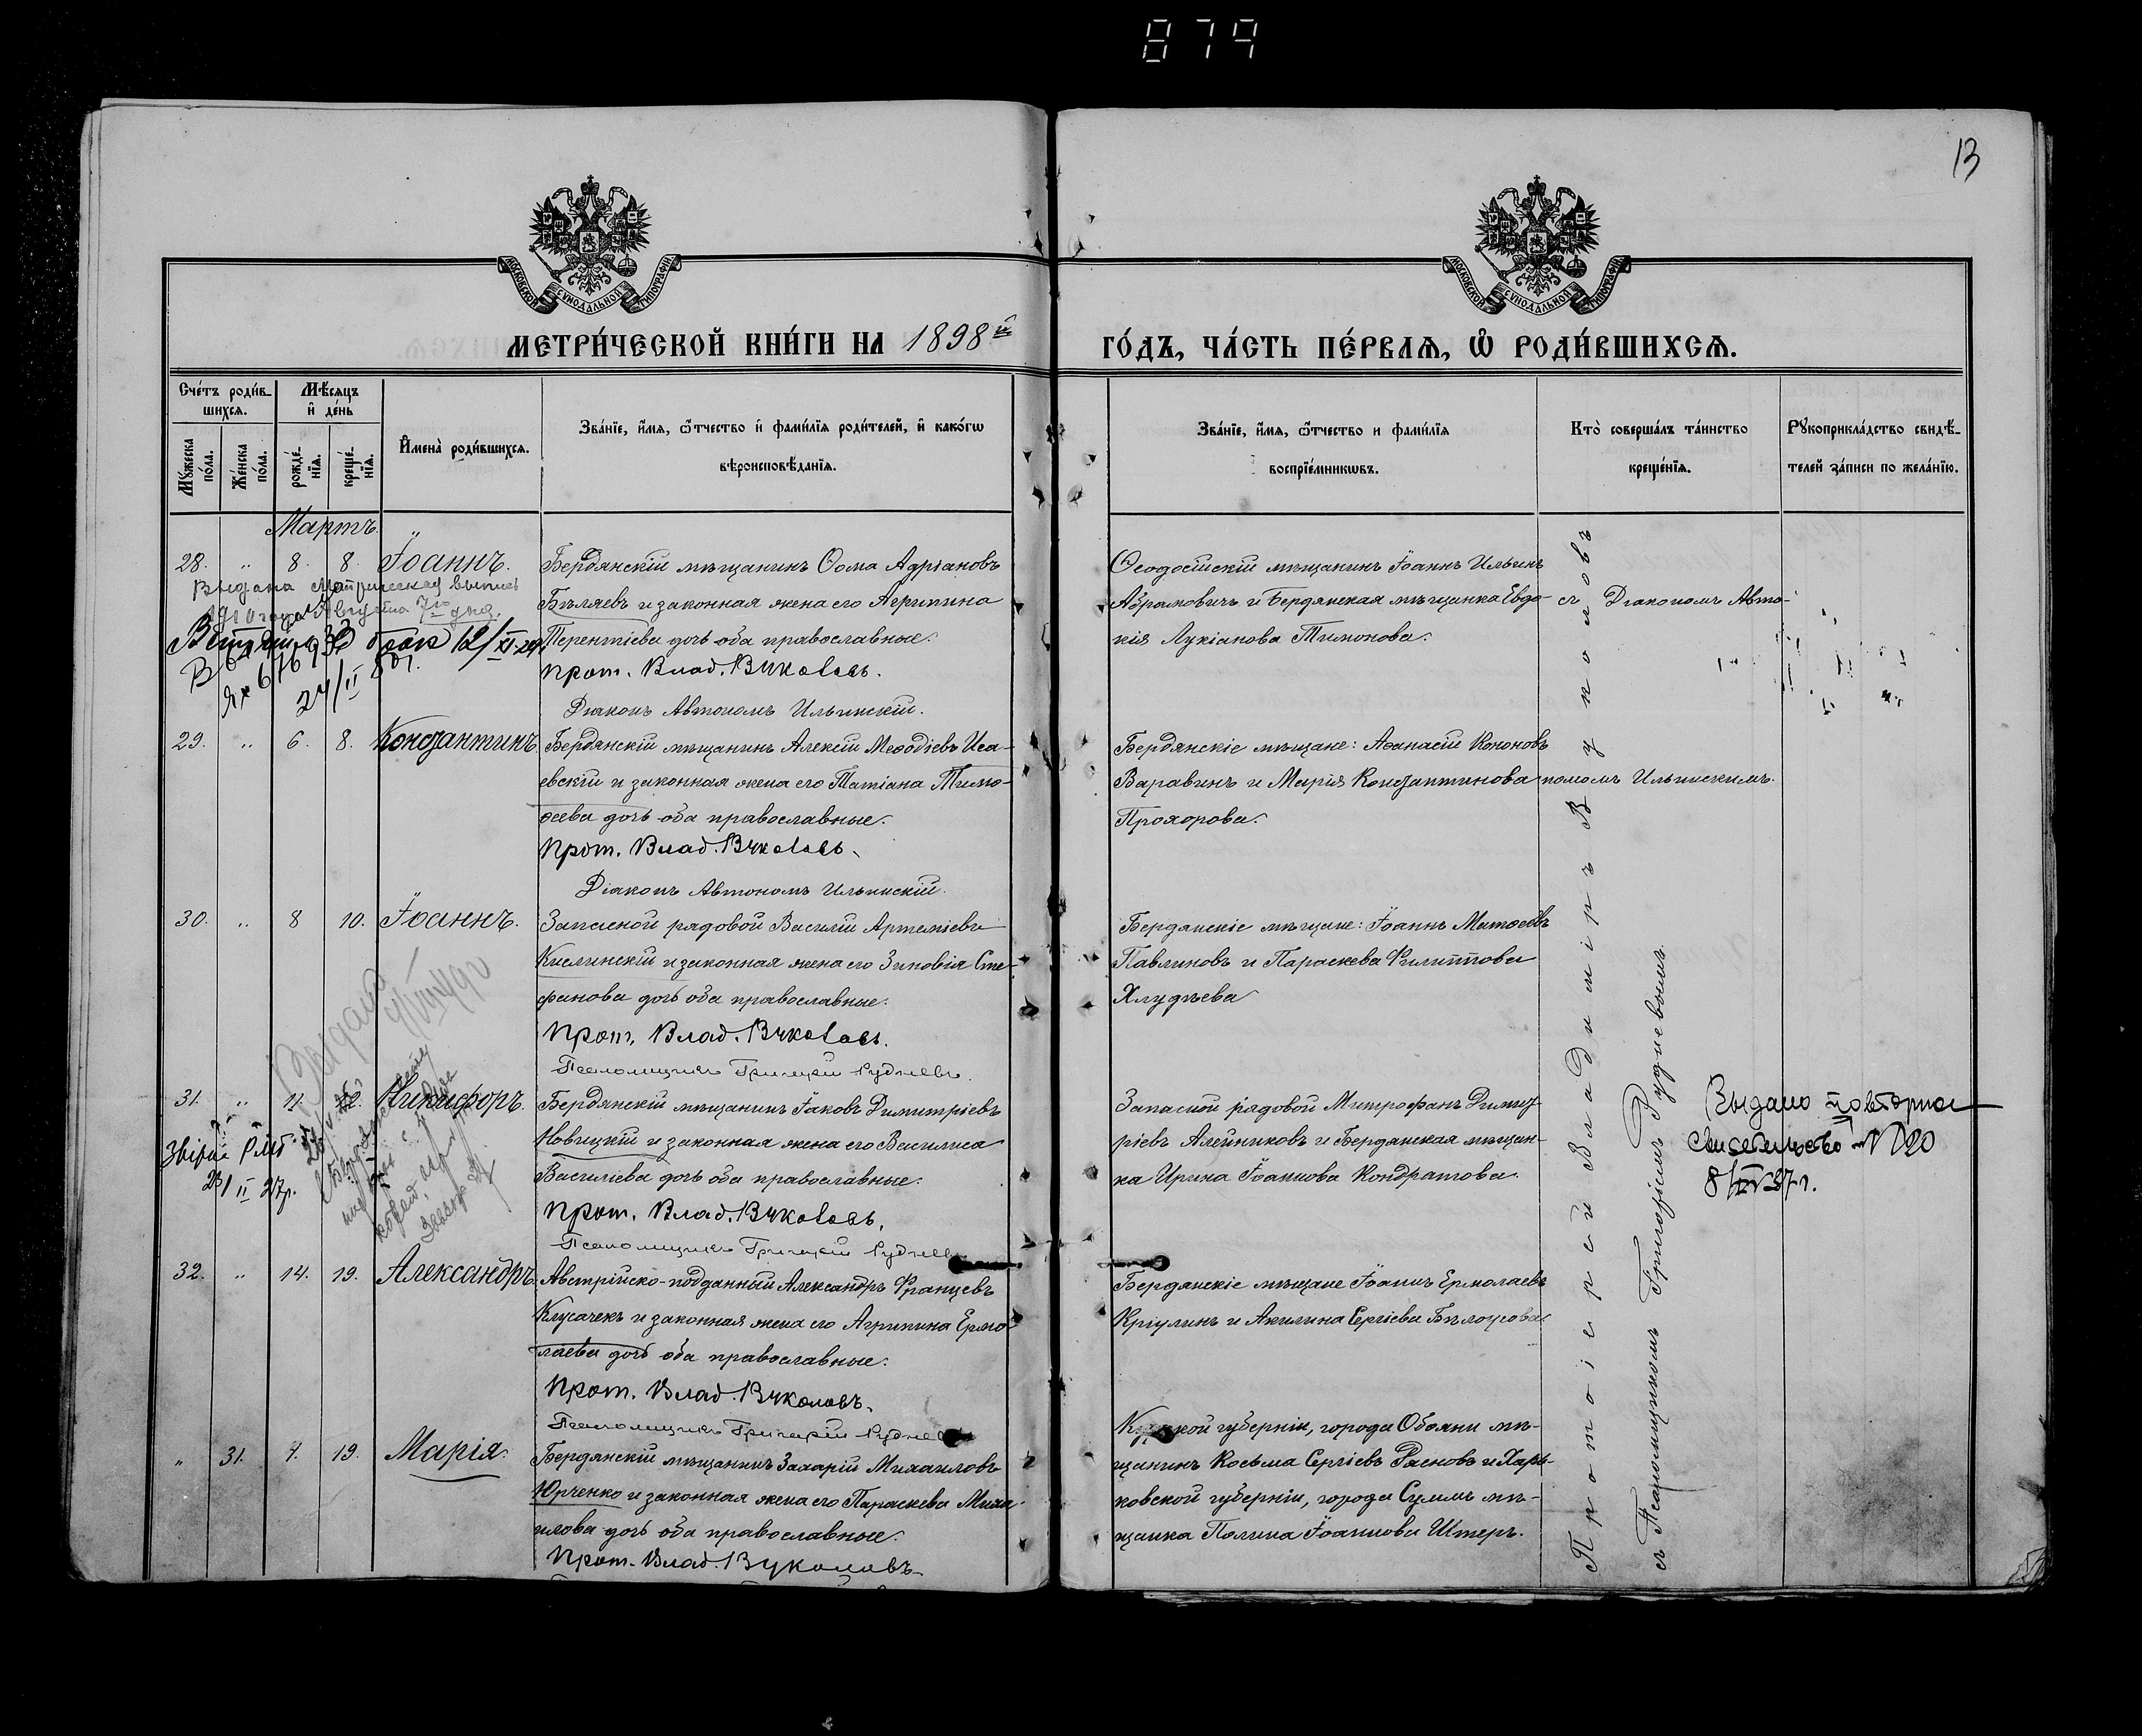 879
13
МОСКОВСКОЙ СѴНОДАЛЬНОЙ ТИПОГРАФІИ
МОСКОВСКОЙ СѴНОДАЛЬНОЙ ТИПОГРАФІИ
МЕТРИ́ЧЕСКОЙ КНИ́ГИ НА 1898й
ГО́ДЪ, ЧА́СТЬ ПЕ́РВАѦ, Ѡ҆ РОДИ́ВШИХСѦ.
Сче́тъ роди́в-
шихсѧ.
Мꙋ́жеска по́ла.
Же́нска по́ла.
Мѣ́сѧцъ
и҆ де́нь
рожде́-
нїѧ.
креще́-
нїѧ.
И҆мена̀ роди́вшихсѧ.
Зва́нїе, и҆́мѧ, ѻ҆́тчество и҆ фами́лїѧ роди́телей, и҆ како́гѡ
вѣроисповѣ́данїѧ.
Зва́нїе, и҆́мѧ, ѻ҆́тчество и фами́лїѧ
воспрїе́мникѡвъ.
Кто̀ соверша́лъ та́инство
креще́нїѧ.
Рꙋкоприкла́дство свидѣ́-
телей за́писи по жела́нїю.
Мартъ
28. " 8. 8. Іоаннъ.
Бердянскій мѣщанинъ Ѳома Адріановъ
Бѣляевъ и законная жена его Агрипина
Терентіева дочь оба православные.
Прот. Влад. Вуколовъ.
Діаконъ Автономъ Ильинскій.
Ѳеодосійскій мѣщанинъ Іоаннъ Ильинъ
Абрамовичъ и Бердянская мѣщанка Евдо-
кія Лукіанова Тимонова.
съ Діакономъ Авто-
Выдана метрическая выпись
1910 года Августа 7го дня.
брак 12/XI-29
24/II
29. " 6. 8. Константинъ
Бердянскій мѣщанинъ Алексій Меѳодіевъ Иса-
евскій и законная жена его Татіана Тимо-
ѳеева дочь оба православные.
Прот. Влад. Вуколовъ.
Діаконъ Автономъ Ильинскій.
Бердянскіе мѣщане: Аѳанасій Кононовъ
Варавинъ и Марія Константинова
Прохорова.
номомъ Ильинскимъ.
30. " 8 10. Іоаннъ.
Запасной рядовой Василій Артеміевъ
Кислинскій и законная жена его Зиновія Сте-
фанова дочь оба православные.
Прот. Влад. Вуколовъ.
Псаломщикъ Григорій Рудневъ.
Бердянскіе мѣщане: Іоаннъ Матѳеевъ
Павлиновъ и Параскева Филиппова
Хлудѣева
Выдано
31. " 11. Никифоръ.
Бердянскій мѣщанинъ Іаковъ Димитріевъ
Новицкій и законная жена его Василиса
Василіева дочь оба православные.
Прот. Влад. Вуколовъ.
Псаломщикъ Григорій Рудневъ
Запасной рядовой Митрофанъ Димит-
ріевъ Алейниковъ и Бердянская мѣщан-
ка Ирина Іоаннова Кондратова.
Выдано повторное
свидетельство N 120
32. " 14. 19. Александръ.
Австрійско-подданный Александръ Францевъ
Клусачекъ и законная жена его Агрипина Ермо-
лаева дочь оба православные.
Прот. Влад. Вуколовъ.
Псаломщикъ Григорій Рудневъ
Бердянскіе мѣщане Іоаннъ Ермолаевъ
Кріулинъ и Акилина Сергіева Бѣлоусова
" 31. 7. 19. Марія.
Бердянскій мѣщанинъ Захарій Михаиловъ
Юрченко и законная жена его Параскева Миха-
илова дочь оба православные.
Прот. Влад. Вуколовъ.
Курской губерніи, города Обояни мѣ-
щанинъ Косьма Сергіевъ и Харь-
ковской губерніи, города Сумы мѣ-
щанка Полина Іоаннова Штеръ.
Протоіерей Владиміръ Вуколовъ
съ Псаломщикомъ Григоріемъ Рудневымъ